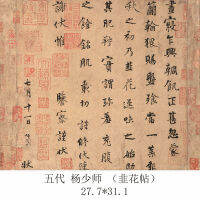 晝寢乍興輖飢正甚忽蒙
簡翰猥賜盤飧當一葉報
秋之初乃韭花逞味之始助
其肥羜實謂珍羞充腹
之餘銘肌載切謹修狀陳
謝伏惟
鑒察謹狀
七月十一日 狀
五代 杨少师 （韭花帖）
27.7*31.1